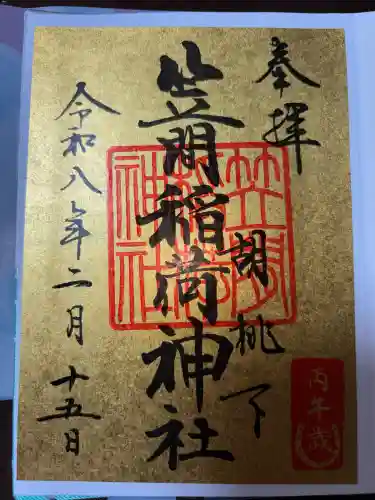 奉拝
胡桃下
笠間稲荷神社
笠間
稲荷
神社
令和八年二月十五日
丙午歳